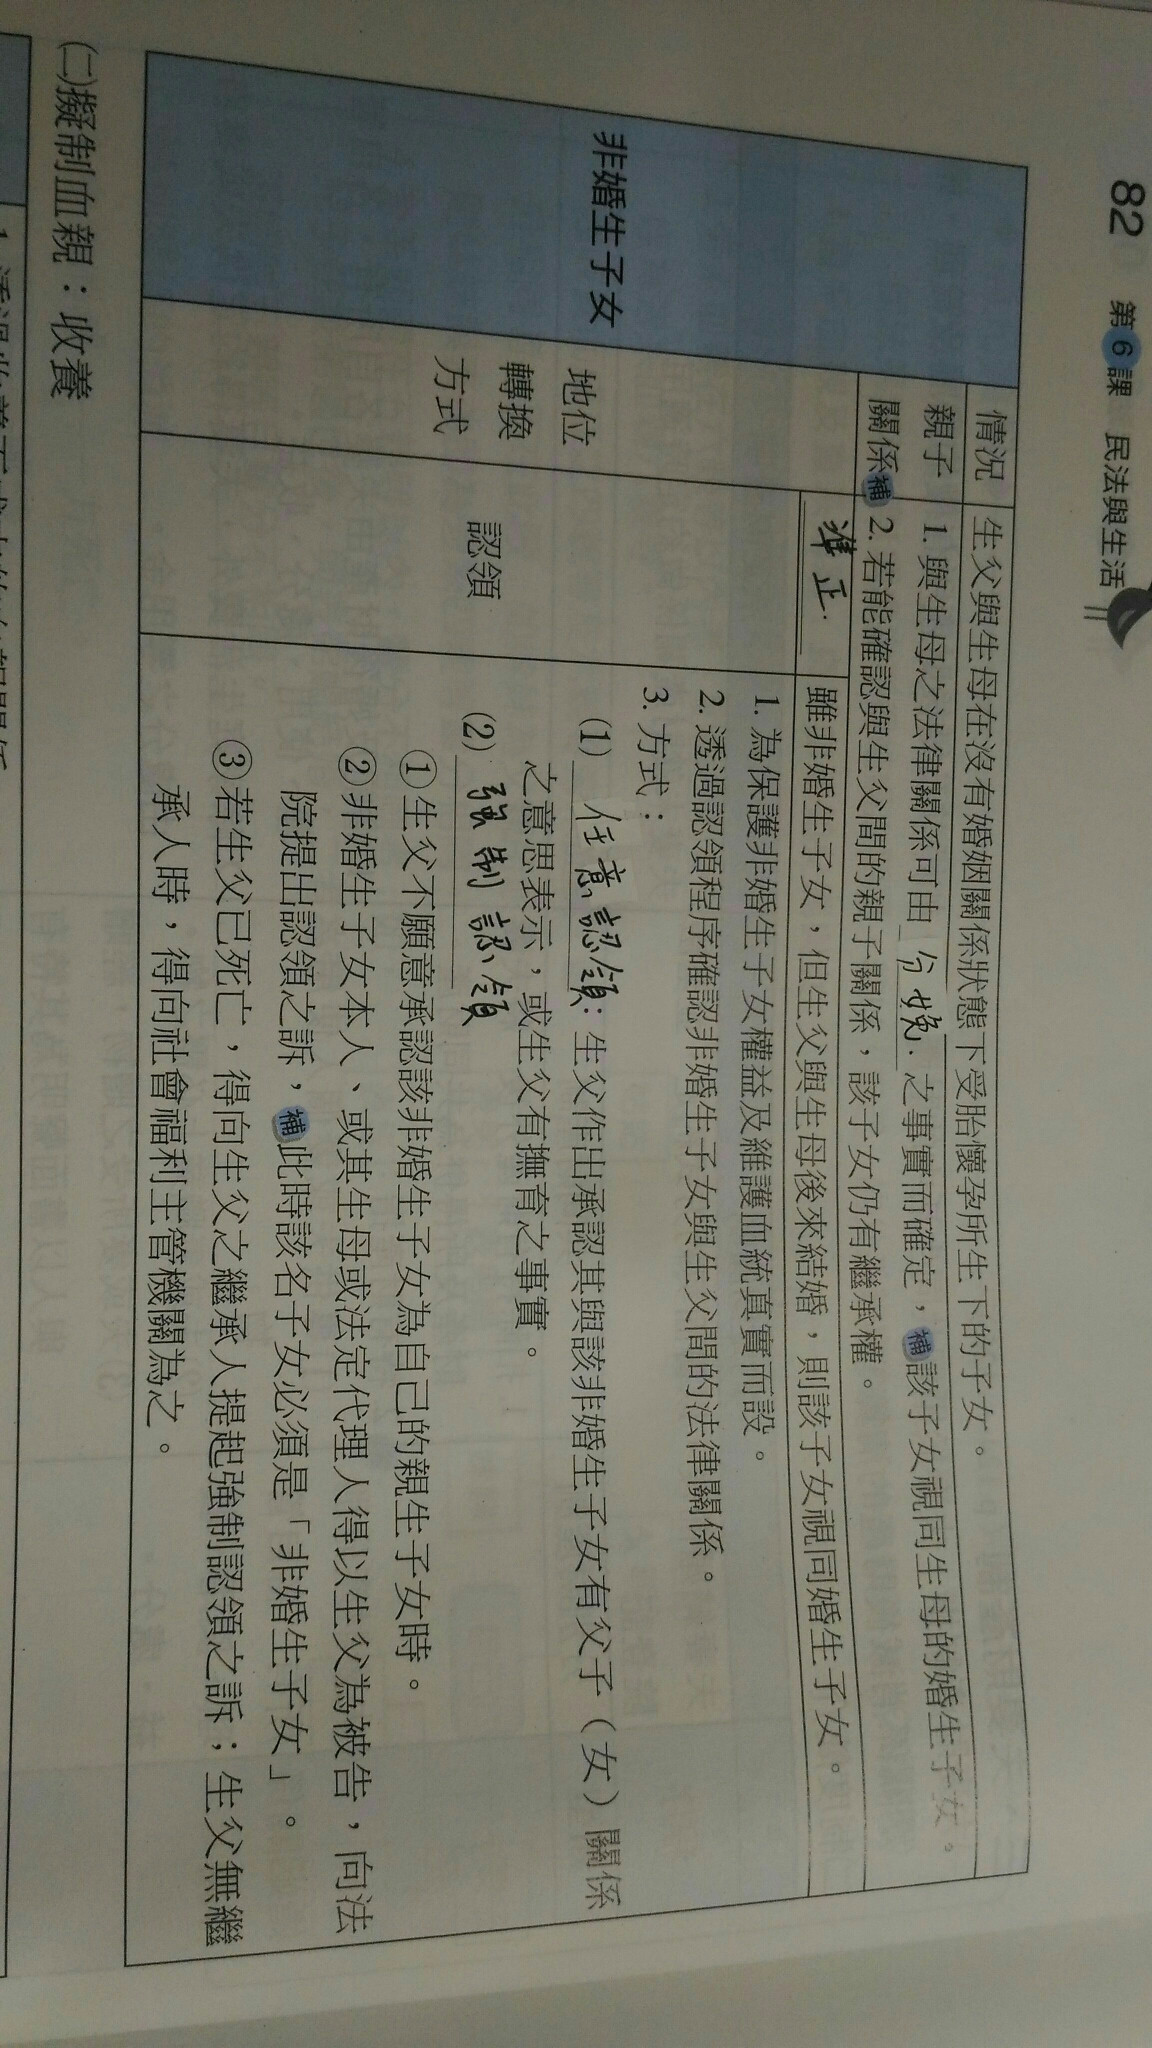 82 第6課 民法與生活
非婚生子女
情況
生父與生母在沒有婚姻關係狀態下受胎懷孕所生下的子女。
親子
關係補
1. 與生母之法律關係可由 分娩 之事實而確定，補該子女視同生母的婚生子女。
2. 若能確認與生父間的親子關係，該子女仍有繼承權。
地位
轉換
方式
準正
雖非婚生子女，但生父與生母後來結婚，則該子女視同婚生子女。
認領
1. 為保護非婚生子女權益及維護血統真實而設。
2. 透過認領程序確認非婚生子女與生父間的法律關係。
3. 方式：
(1) 任意認領：生父作出承認其與該非婚生子女有父子（女）關係
之意思表示，或生父有撫育之事實。
(2) 強制認領
①生父不願意承認該非婚生子女為自己的親生子女時。
②非婚生子女本人、或其生母或法定代理人得以生父為被告，向法
院提出認領之訴，補此時該名子女必須是「非婚生子女」。
③若生父已死亡，得向生父之繼承人提起強制認領之訴；生父無繼
承人時，得向社會福利主管機關為之。
(二)擬制血親：收養